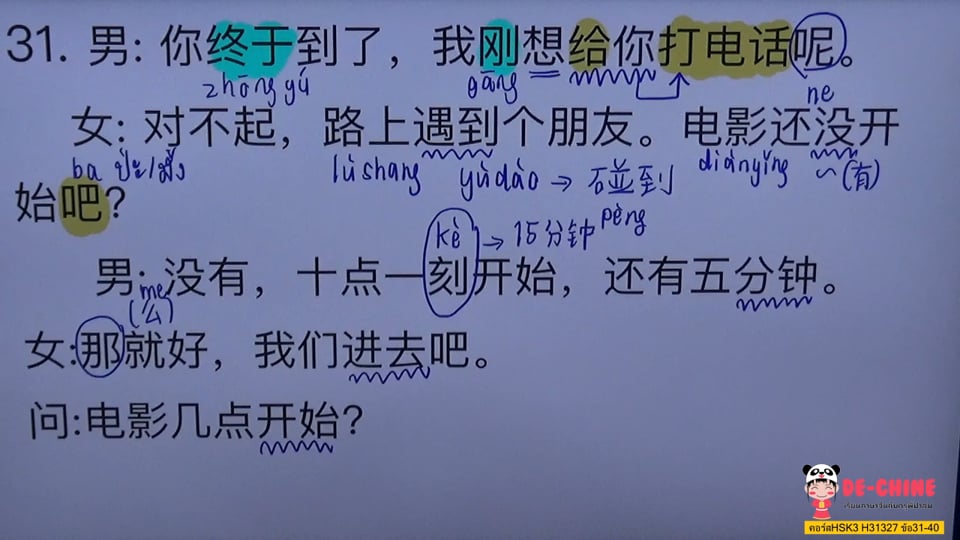 31. 男: 你终于到了，我刚想给你打电话呢。
zhōng yú gāng ne
女: 对不起，路上遇到个朋友。电影还没开
ba ปะ/มั้ง lùshang yùdào → 碰到 diànyǐng (有)
始吧?
kè → 15分钟 pèng
男: 没有，十点一刻开始，还有五分钟。
me
(么)
女:那就好，我们进去吧。
问:电影几点开始?
DE-CHINE
เรียนภาษาจีนกับครูพี่ป่าน
คอร์สHSK3 H31327 ข้อ31-40